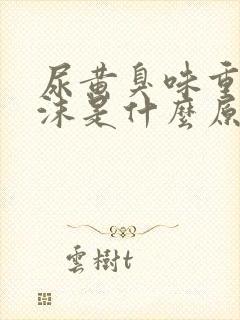 尿黃臭味重
沫是什麼原
雲樹t